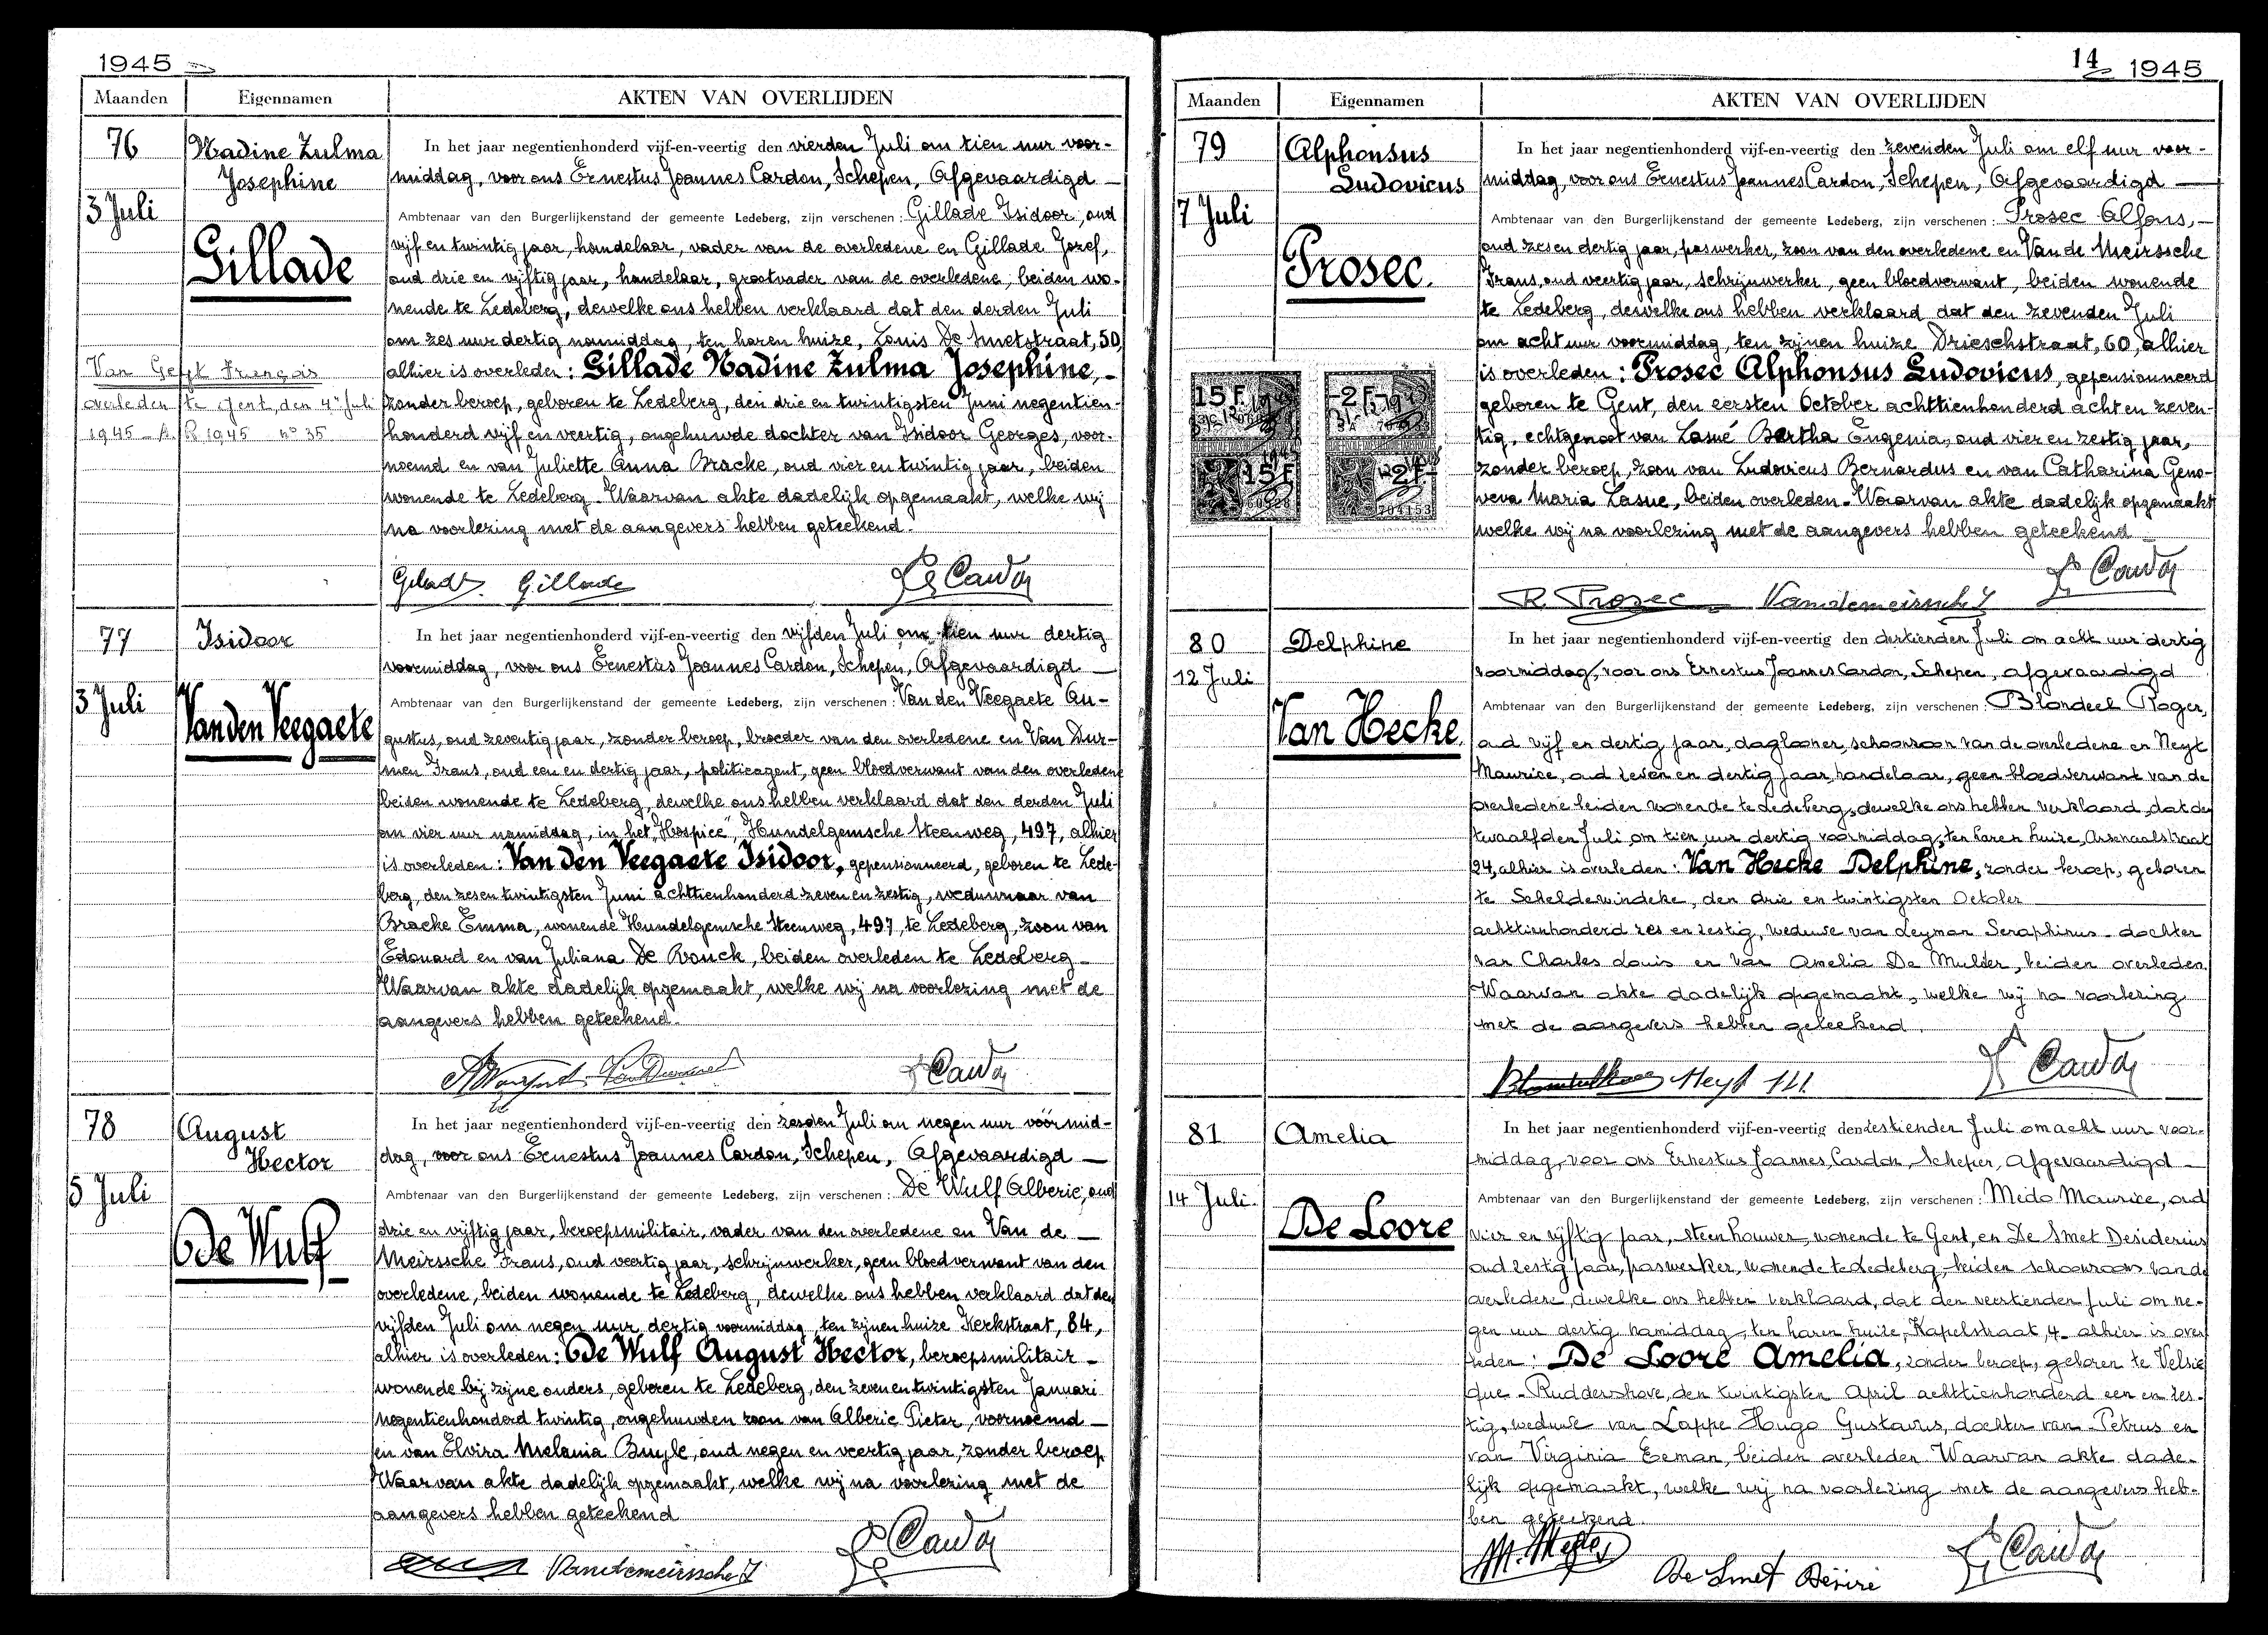 1945
Maanden
Eigennamen
AKTEN VAN OVERLIJDEN
76
3 Juli
Nadine Zulma
Josephine
Gillade
Van Gefft François
overleden te Gent, den 4n Juli
1945 - A. R 1945 n° 35
In het jaar negentienhonderd vijf-en-veertig den vierden Juli om tien uur voor-
middag, voor ons Ernestus Joannes Cardon, Schepen, Afgevaardigd —
Ambtenaar van den Burgerlijkenstand der gemeente Ledeberg, zijn verschenen : Gillade Isidoor, oud
vijf en twintig jaar, handelaar, vader van de overledene en Gillade Jozef,
oud drie en vijftig jaar, handelaar, grootvader van de overledene, beiden wo-
nende te Ledeberg, dewelke ons hebben verklaard dat den derden Juli
om zes uur dertig namiddag, ten haren huize, Louis De Smetstraat, 50,
alhier is overleden : Gillade Nadine Zulma Josephine, -
zonder beroep, geboren te Ledeberg, den drie en twintigsten Juni negentien-
honderd vijf en veertig, ongehuwde dochter van Isidoor Georges, voor-
noemd en van Juliette Anna Bracke, oud vier en twintig jaar, beiden
wonende te Ledeberg. Waarvan akte dadelijk opgemaakt, welke wij
na voorlezing met de aangevers hebben geteekend.
Gillade Cardon
77
3 Juli
Isidoor
Van den Veegaete
In het jaar negentienhonderd vijf-en-veertig den vijfden Juli om tien uur dertig
voormiddag, voor ons Ernestus Joannes Cardon, Schepen, Afgevaardigd —
Ambtenaar van den Burgerlijkenstand der gemeente Ledeberg, zijn verschenen : Van den Veegaete Au-
gustus, oud zeventig jaar, zonder beroep, broeder van den overledene en Van Dur-
men Frans, oud een en dertig jaar, politieagent, geen bloedverwant van den overledene
beiden wonende te Ledeberg, dewelke ons hebben verklaard dat den derden Juli
om vier uur namiddag, in het "Hospice", Hundelgemsche Steenweg, 497, alhier
is overleden : Van den Veegaete Isidoor, gepensionneerd, geboren te Lede-
berg, den zesen twintigsten Juni achttienhonderd zeven en zestig, weduwnaar van
Bracke Emma, wonende Hundelgemsche Steenweg, 497, te Ledeberg, zoon van
Edouard en van Juliana De Vonck, beiden overleden te Ledeberg -
Waarvan akte dadelijk opgemaakt, welke wij na voorlezing met de
aangevers hebben geteekend.
Cardon
78
5 Juli
August
Hector
De Wulf
In het jaar negentienhonderd vijf-en-veertig den zesden Juli om negen uur voormid-
dag, voor ons Ernestus Joannes Cardon, Schepen, Afgevaardigd —
Ambtenaar van den Burgerlijkenstand der gemeente Ledeberg, zijn verschenen : De Wulf Alberic, oud
drie en vijftig jaar, beroepsmilitair, vader van den overledene en Van de —
Meirssche Frans, oud veertig jaar, schrijnwerker, geen bloedverwant van den
overledene, beiden wonende te Ledeberg, dewelke ons hebben verklaard dat den
vijfden Juli om negen uur dertig voormiddag, ten zijnen huize Kerkstraat, 84,
alhier is overleden : De Wulf August Hector, beroepsmilitair -
wonende bij zijne ouders, geboren te Ledeberg, den zeven en twintigsten Januari
negentienhonderd twintig, ongehuwden zoon van Alberic Pieter, voornoemd —
en van Elvira Melania Buyle, oud negen en veertig jaar, zonder beroep
Waarvan akte dadelijk opgemaakt, welke wij na voorlezing met de
aangevers hebben geteekend
Vandemeirssche F Cardon
14 1945
Maanden
Eigennamen
AKTEN VAN OVERLIJDEN
79
7 Juli
Alphonsus
Ludovicus
Prosec.
15 F
2 F
15 F
2 F
704153
In het jaar negentienhonderd vijf-en-veertig den zevenden Juli om elf uur voor-
middag, voor ons Ernestus Joannes Cardon, Schepen, Afgevaardigd —
Ambtenaar van den Burgerlijkenstand der gemeente Ledeberg, zijn verschenen : Prosec Alfons, -
oud zesen dertig jaar, paswerker, zoon van den overledene en Van de Meirssche
Frans, oud veertig jaar, schrijnwerker, geen bloedverwant, beiden wonende
te Ledeberg, dewelke ons hebben verklaard dat den zevenden Juli
om acht uur voormiddag, ten zijnen huize Drieschstraat, 60, alhier
is overleden : Prosec Alphonsus Ludovicus, gepensionneerd
geboren te Gent, den eersten October achttienhonderd acht en zeven-
tig, echtgenoot van Lasué Bertha Eugenia, oud vier en zestig jaar,
zonder beroep, zoon van Ludovicus Bernardus en van Catharina Geno-
veva Maria Lasue, beiden overleden - Waarvan akte dadelijk opgemaakt
welke wij na voorlezing met de aangevers hebben geteekend -
R. Prosec Vandemeirssche F Cardon
80
12 Juli
Delphine
Van Hecke
In het jaar negentienhonderd vijf-en-veertig den dertienden Juli om acht uur dertig
voormiddag, voor ons Ernestus Joannes Cardon, Schepen, afgevaardigd
Ambtenaar van den Burgerlijkenstand der gemeente Ledeberg, zijn verschenen : Blondeel Roger,
oud vijf en dertig jaar, daglooner, schoonzoon van de overledene en Neyt
Maurice, oud zeven en dertig jaar, handelaar, geen bloedverwant van de
overledene beiden wonende te Ledeberg, dewelke ons hebben verklaard, dat den
twaalfden Juli om tien uur dertig voormiddag, ten haren huize, Arsenaalstraat
94, alhier is overleden : Van Hecke Delphine, zonder beroep, geboren
te Scheldewindeke, den drie en twintigsten October
achttienhonderd zes en zestig, weduwe van Leyman Seraphinus - dochter
van Charles Louis en van Amelia De Mulder, beiden overleden.
Waarvan akte dadelijk opgemaakt, welke wij na voorlezing
met de aangevers hebben geteekend.
Neyt M. Cardon
81
14 Juli.
Amelia
De Loore
In het jaar negentienhonderd vijf-en-veertig den zestienden Juli om acht uur voor-
middag, voor ons Ernestus Joannes, Cardon, Schepen, Afgevaardigd —
Ambtenaar van den Burgerlijkenstand der gemeente Ledeberg, zijn verschenen : Medo Maurice, oud
vier en vijftig jaar, steenhouwer, wonende te Gent, en De Smet Desiderius
oud zestig jaar, paswerker, wonende te Ledeberg, beiden schoonzoons van de
overledene, dewelke ons hebben verklaard, dat den veertienden Juli om ne-
gen uur dertig namiddag, ten haren huize, Kapelstraat, 4 - alhier is over
leden : De Loore Amelia, zonder beroep, geboren te Velsic
que - Ruddershove, den twintigsten April achttienhonderd een en zes-
tig, weduwe van Lappe Hugo Gustavus, dochter van Petrus en
van Virginia Eeman, beiden overleden. Waarvan akte dade-
lijk opgemaakt, welke wij na voorlezing met de aangevers heb-
ben geteekend.
De Smet Désiré Cardon